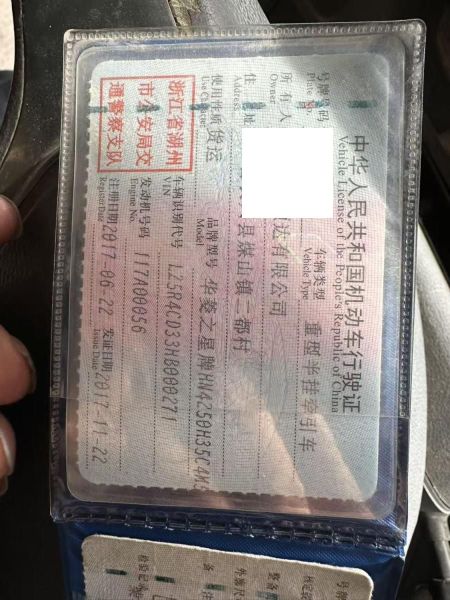 中华人民共和国机动车行驶证
Vehicle License of the People's Republic of China
号牌号码
Plate No.
车辆类型 重型半挂牵引车
Vehicle Type
所有人 达有限公司
Owner
住址 县煤山镇三都村
Address
使用性质 货运
Use Character
品牌型号 华菱之星牌HN4C50H35C4M3
Model
浙江省湖州
市公安局交
通警察支队
车辆识别代号 LZ5R4CD33HB000271
VIN
发动机号码 117A00036
Engine No.
注册日期 2017-06-22
Register Date
发证日期 2017-11-22
Issue Date
号牌
整备
外廓尺
备
检验记